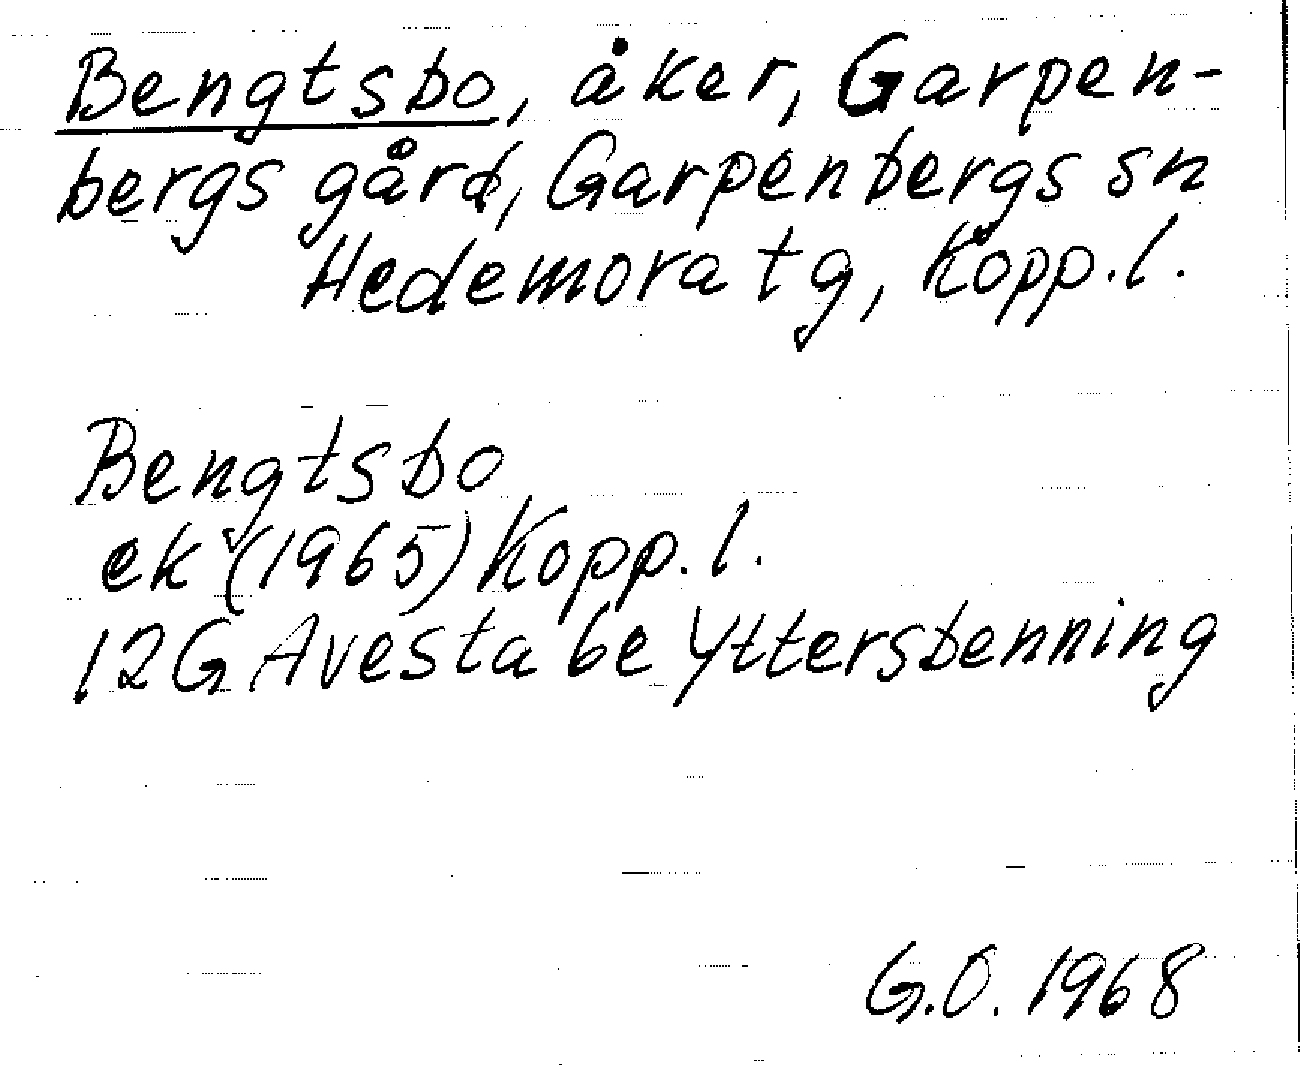 Bengtsbo, åker, Garpen-
bergs gård, Garpenbergs sn
Hedemora tg, Kopp.l.
Bengtsbo
ek (1965) Kopp.l.
12G Avesta be Yttersbenning
G.O. 1968